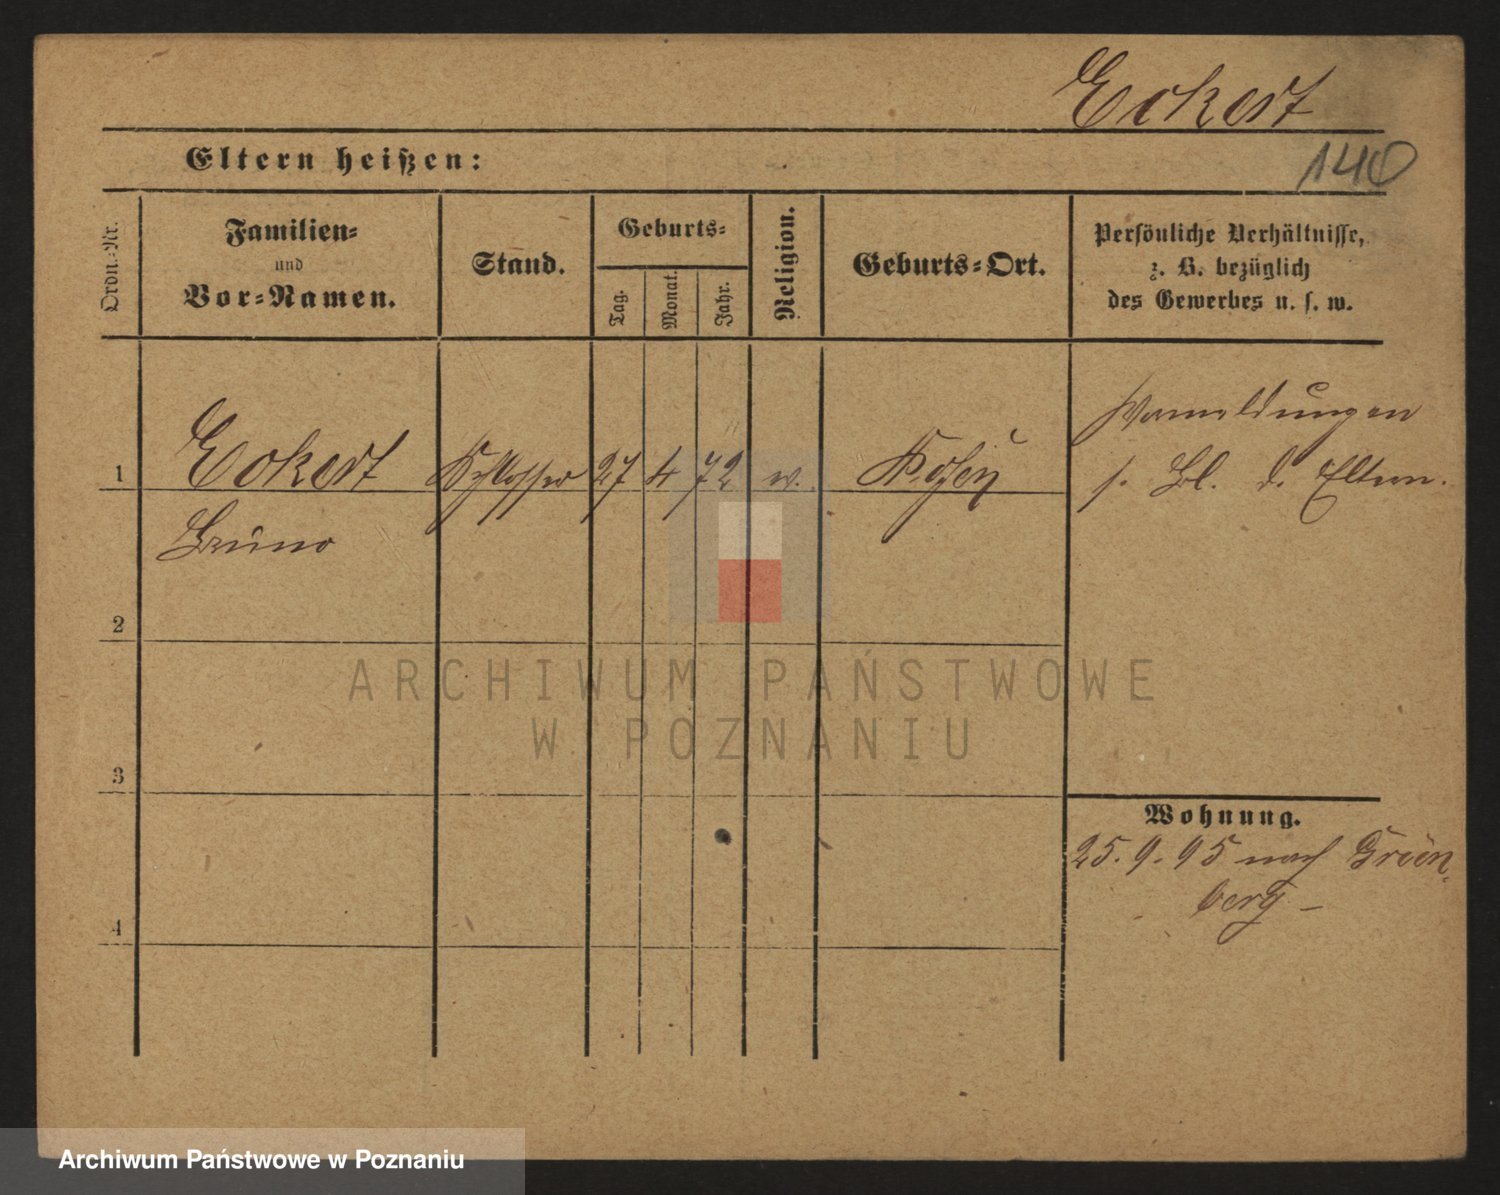 Eckert
140
Eltern heißen:
Ordn.-Nr.
Familien-
und
Vor-Namen.
Stand.
Geburts-
Tag.
Monat.
Jahr.
Religion.
Geburts-Ort.
Persönliche Verhältnisse,
z. B. bezüglich
des Gewerbes u. s. w.
1 Eckert Schlosser 27 4 72 Posen
Bruno
Vormeldungen
s. Bl. d. Eltern.
2
3
4
Wohnung.
25. 9. 95 nach Grün-
berg –
ARCHIWUM PAŃSTWOWE
W POZNANIU
Archiwum Państwowe w Poznaniu